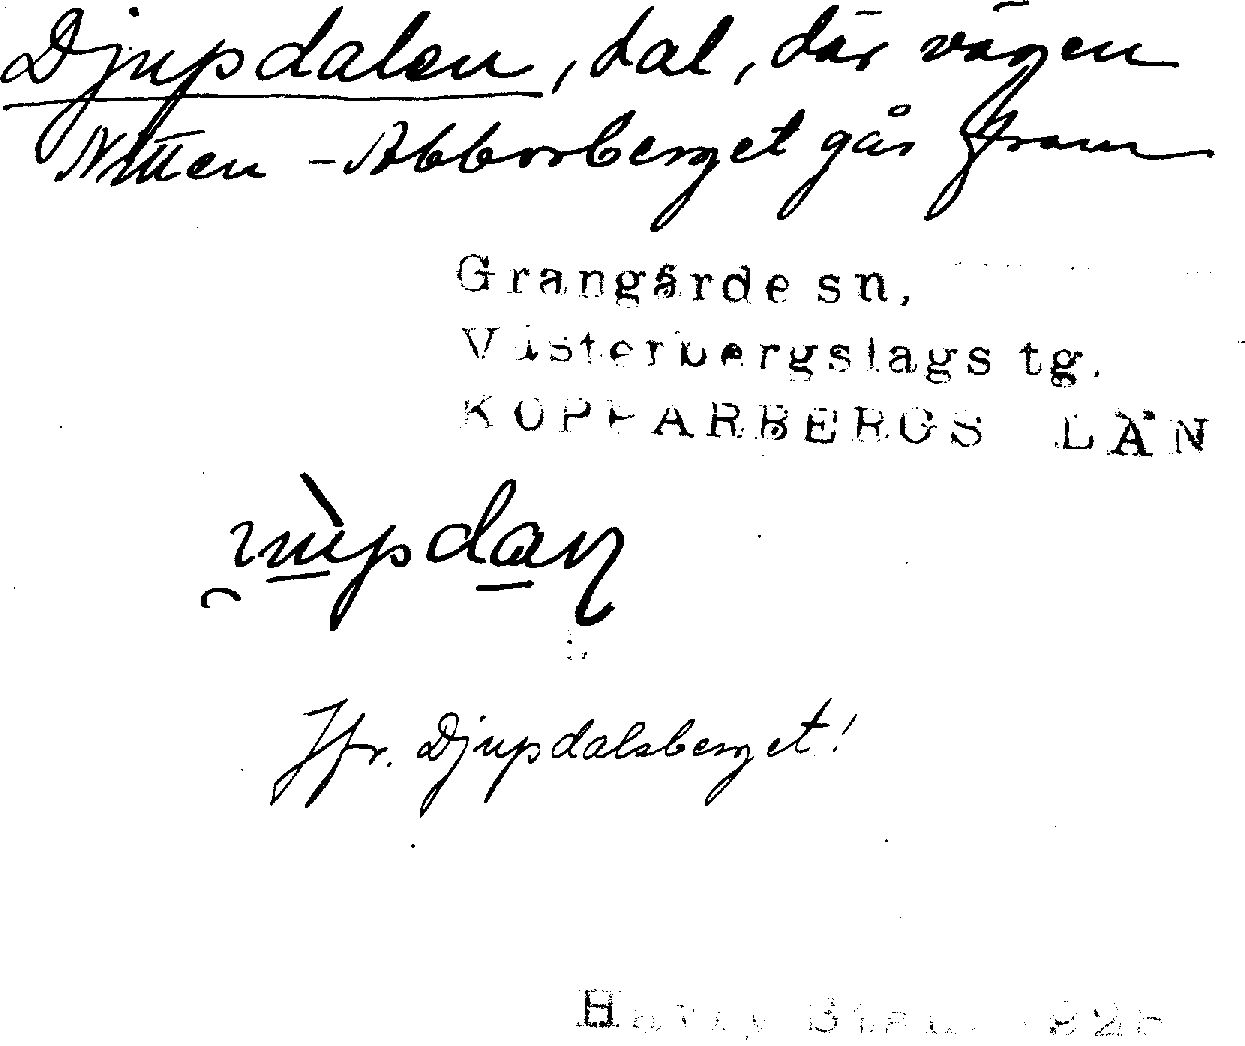 Djupdalen, dal, där vägen
Nitten - Abborberget går fram
Grangärde sn,
Västerbergslags tg.
KOPPARBERGS LÄN
Jfr. Djupdalsberget!
Harry Ståhl 192